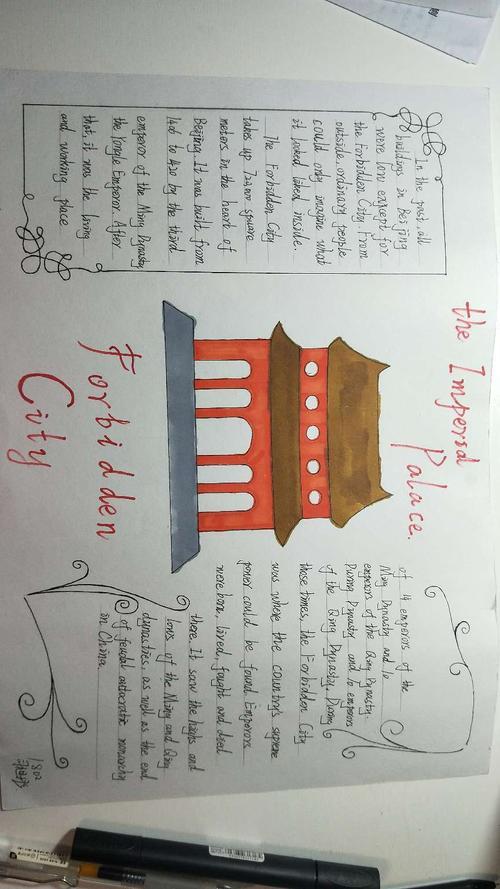 the Imperial
Palace.
In the past, all
buildings in Beijing
were low except for
the Forbidden City. From
outside, ordinary people
could only imagine what
it looked liked inside.
The Forbidden City
takes up 720,000 square
meters in the heart of
Beijing. It was built from
1406 to 1420 by the third
emperor of the Ming Dynasty
the Yongle Emperor. After
that, it was the living
and working place
Forbidden
City
of 14 emperors of the
Ming Dynasty and 10
emperors of the Qing Dynasty.
During Dynasty and 10 emperors
of the Qing Dynasty. During
those times, the Forbidden City
was where the country's supreme
power could be found. Emperors
were born, lived, fought and died
there. It saw the highs and
lows of the Ming and Qing
dynasties, as well as the end
of feudal autocratic monarchy
in China.
1802